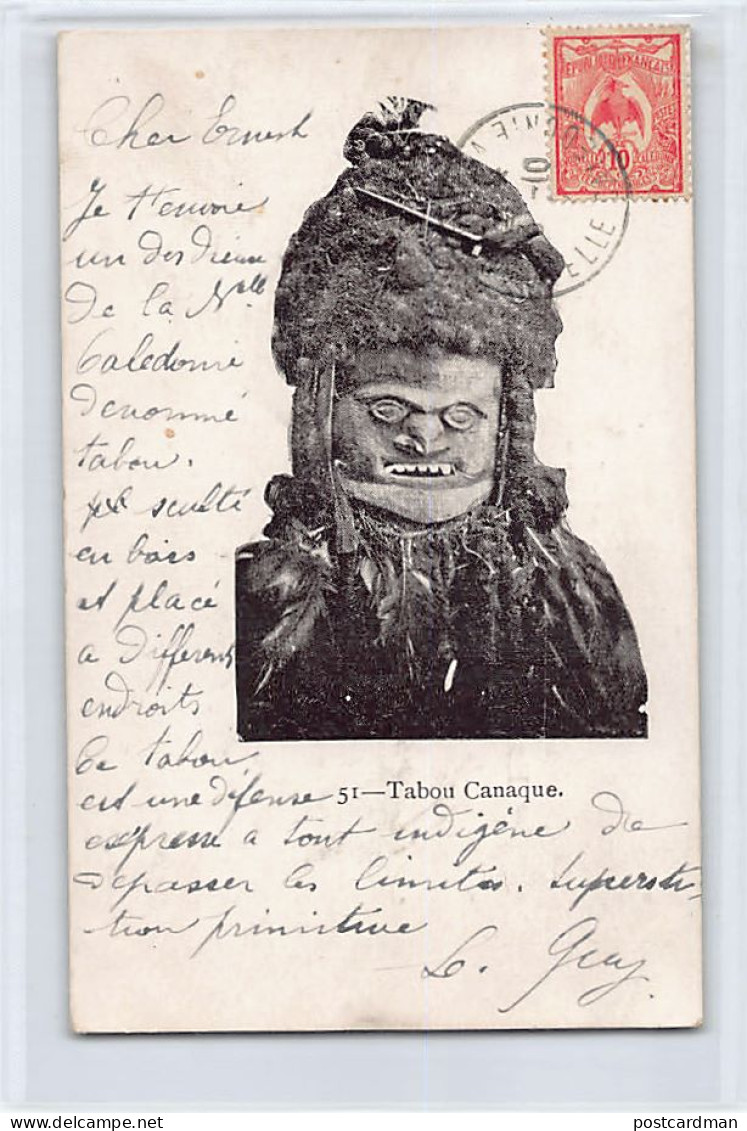 Cher Ernest
Je t'envoie
un des dieux
de la Nelle
Caledonie
denommé
tabou.
sculté
en bois
et placé
a different
endroits
Ce tabou
est une défense
expresse a tout indigéne de
depasser les limites. Supersti
tion primitive
L. Guy
51—Tabou Canaque.
RÉPUBLIQUE FRANÇAISE
10
ELLE
postcardman